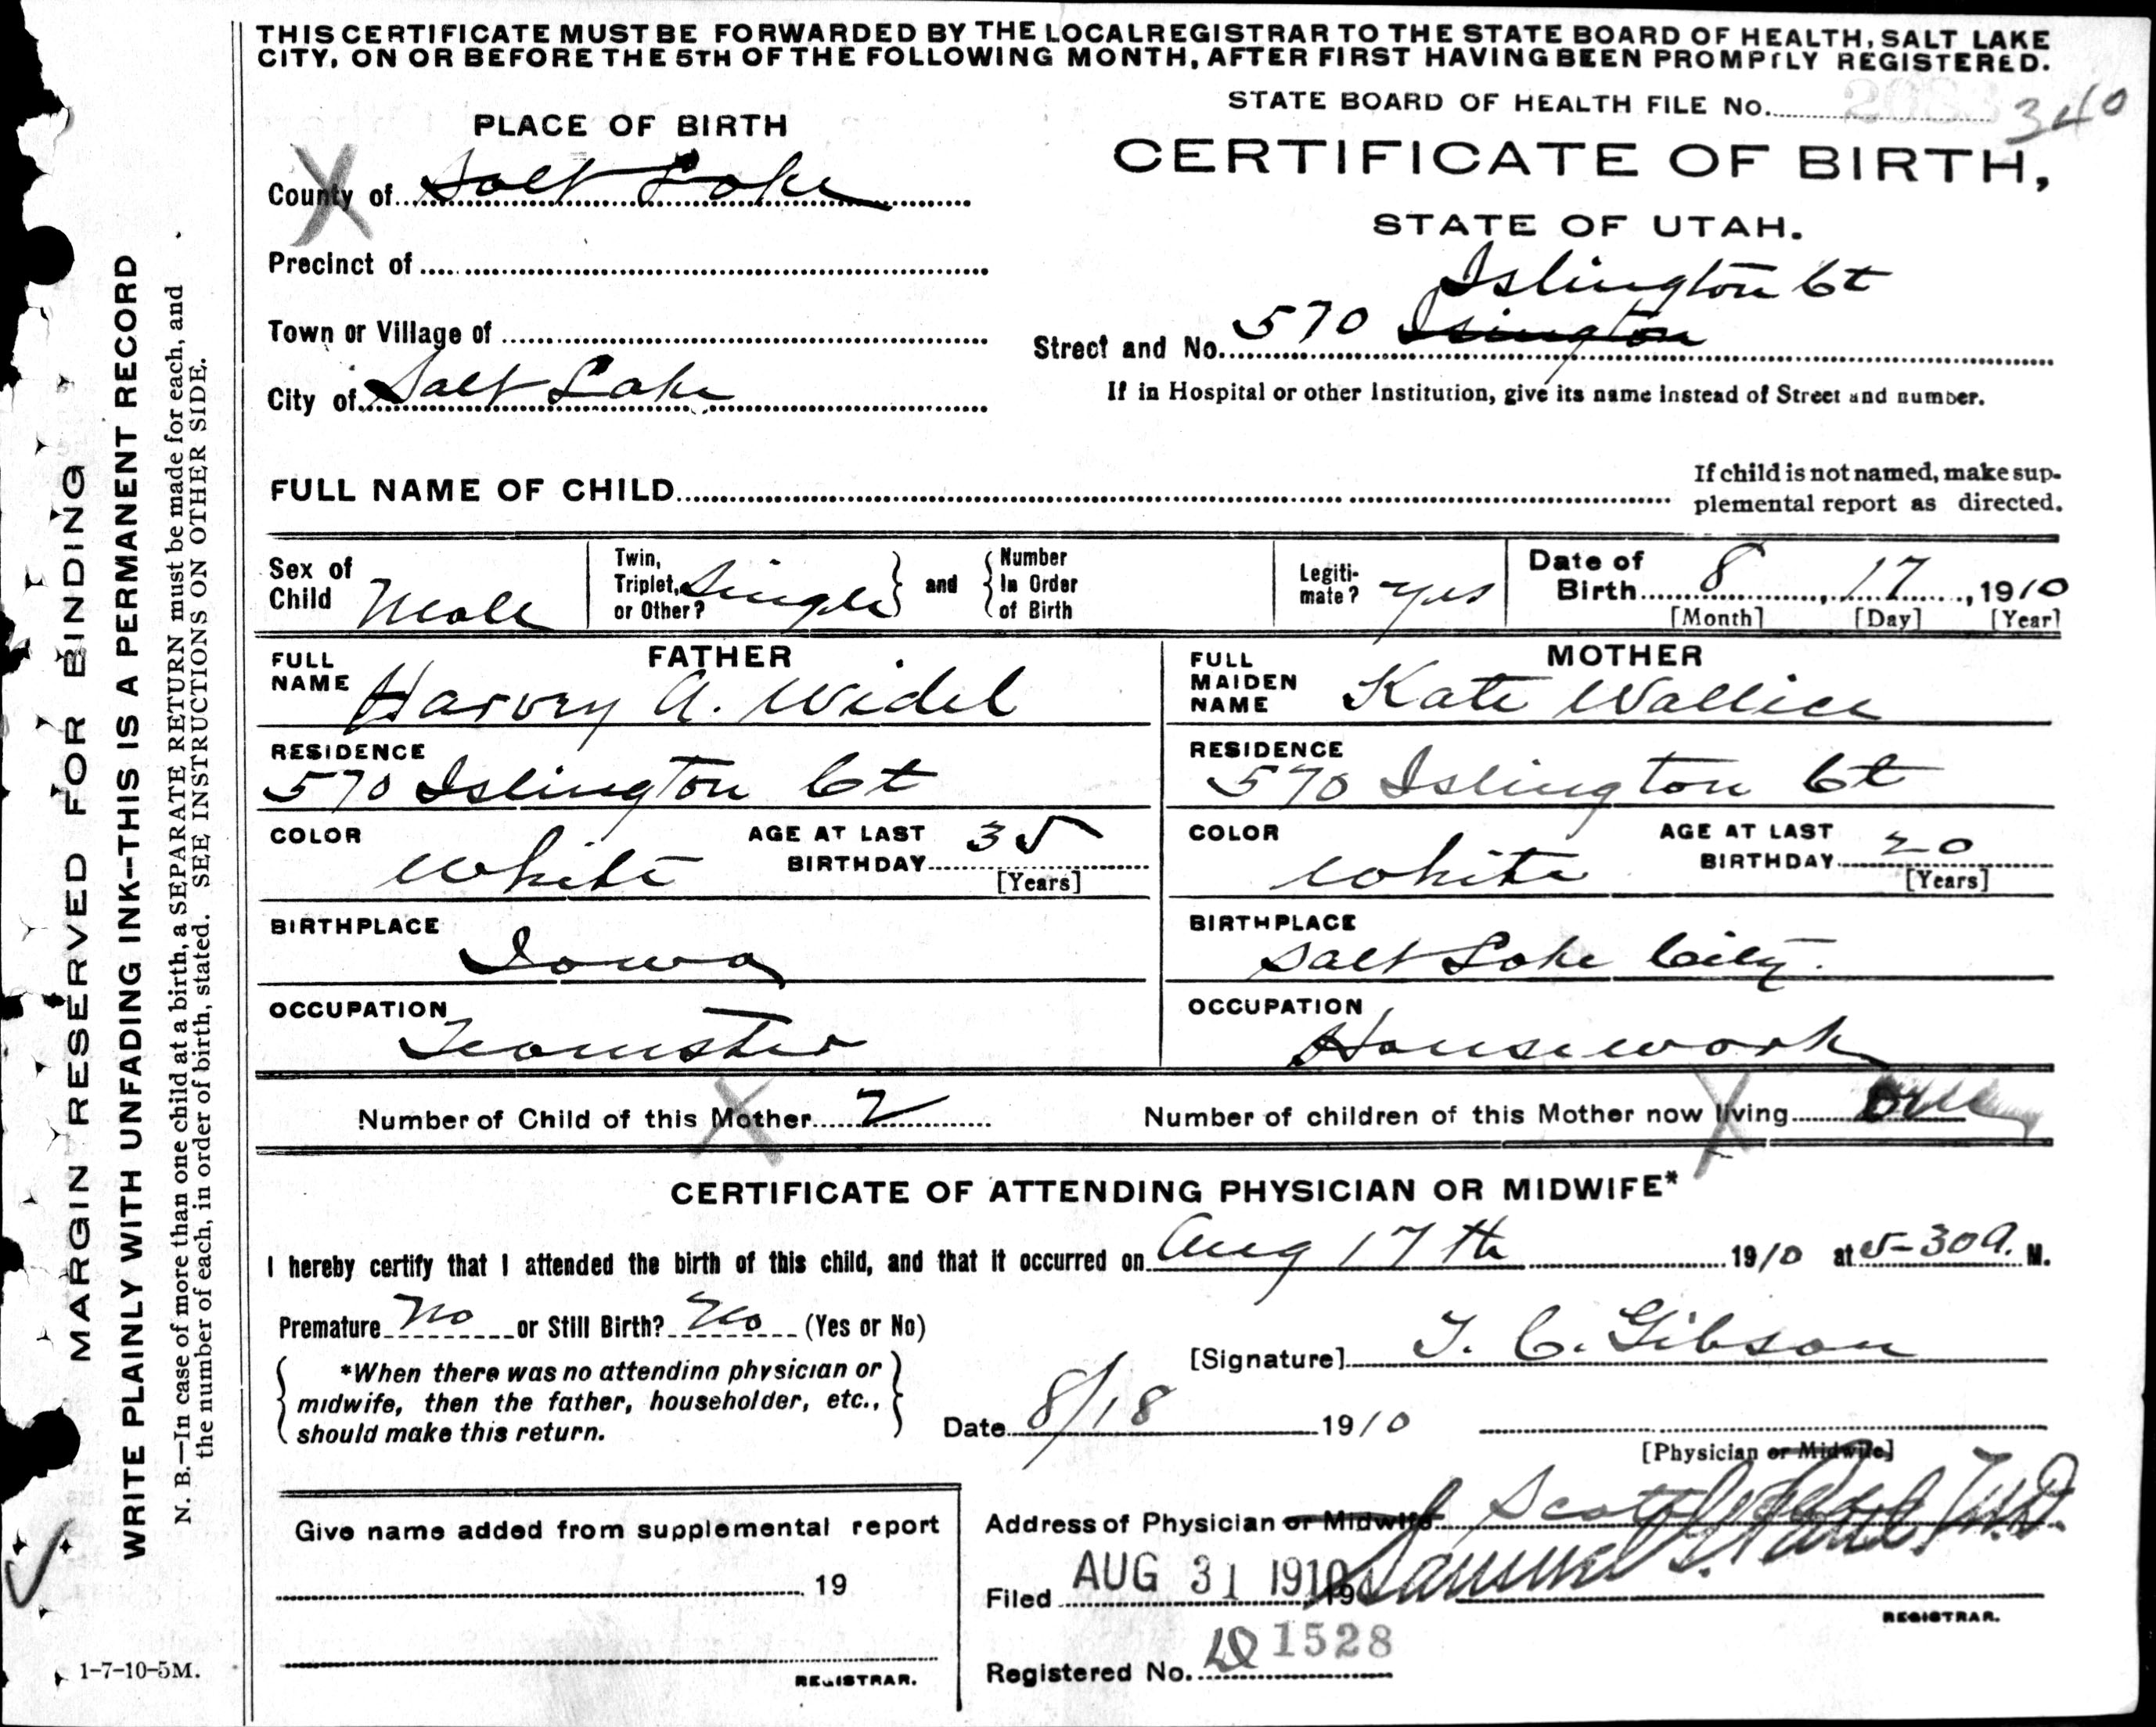 THIS CERTIFICATE MUST BE FORWARDED BY THE LOCAL REGISTRAR TO THE STATE BOARD OF HEALTH, SALT LAKE
CITY, ON OR BEFORE THE 5TH OF THE FOLLOWING MONTH, AFTER FIRST HAVING BEEN PROMPTLY REGISTERED.
STATE BOARD OF HEALTH FILE No. 340
PLACE OF BIRTH
CERTIFICATE OF BIRTH,
STATE OF UTAH.
County of Salt Lake
Precinct of
Town or Village of
City of Salt Lake
Islington Ct
Street and No. 570 Isington
If in Hospital or other Institution, give its name instead of Street and number.
FULL NAME OF CHILD
If child is not named, make sup-
plemental report as directed.
Sex of Child Male
Twin, Triplet, or Other? Single and Number In Order of Birth
Legiti-mate? yes
Date of Birth 8, 17, 1910
[Month] [Day] [Year]
FATHER
FULL NAME Harvey A. Widel
RESIDENCE
570 Islington Ct
COLOR White
AGE AT LAST BIRTHDAY 35
[Years]
BIRTHPLACE
Iowa
OCCUPATION
Teamster
MOTHER
FULL MAIDEN NAME Kate Wallice
RESIDENCE
570 Islington Ct
COLOR White
AGE AT LAST BIRTHDAY 20
[Years]
BIRTHPLACE
Salt Lake City.
OCCUPATION
Housework
Number of Child of this Mother 2
Number of children of this Mother now living one
CERTIFICATE OF ATTENDING PHYSICIAN OR MIDWIFE*
I hereby certify that I attended the birth of this child, and that it occurred on Aug 17th 1910 at 5-30 A. M.
Premature No or Still Birth? No (Yes or No)
*When there was no attending physician or
midwife, then the father, householder, etc.,
should make this return.
[Signature] T. C. Gibson
Date 8/18 1910
[Physician or Midwife]
Address of Physician or Midwife Scott
Filed AUG 31 1910 19
REGISTRAR.
Registered No. 1528
Give name added from supplemental report
19
REGISTRAR.
1-7-10-5M.
MARGIN RESERVED FOR BINDING
WRITE PLAINLY WITH UNFADING INK--THIS IS A PERMANENT RECORD
N. B.—In case of more than one child at a birth, a SEPARATE RETURN must be made for each, and
the number of each, in order of birth, stated. SEE INSTRUCTIONS ON OTHER SIDE.